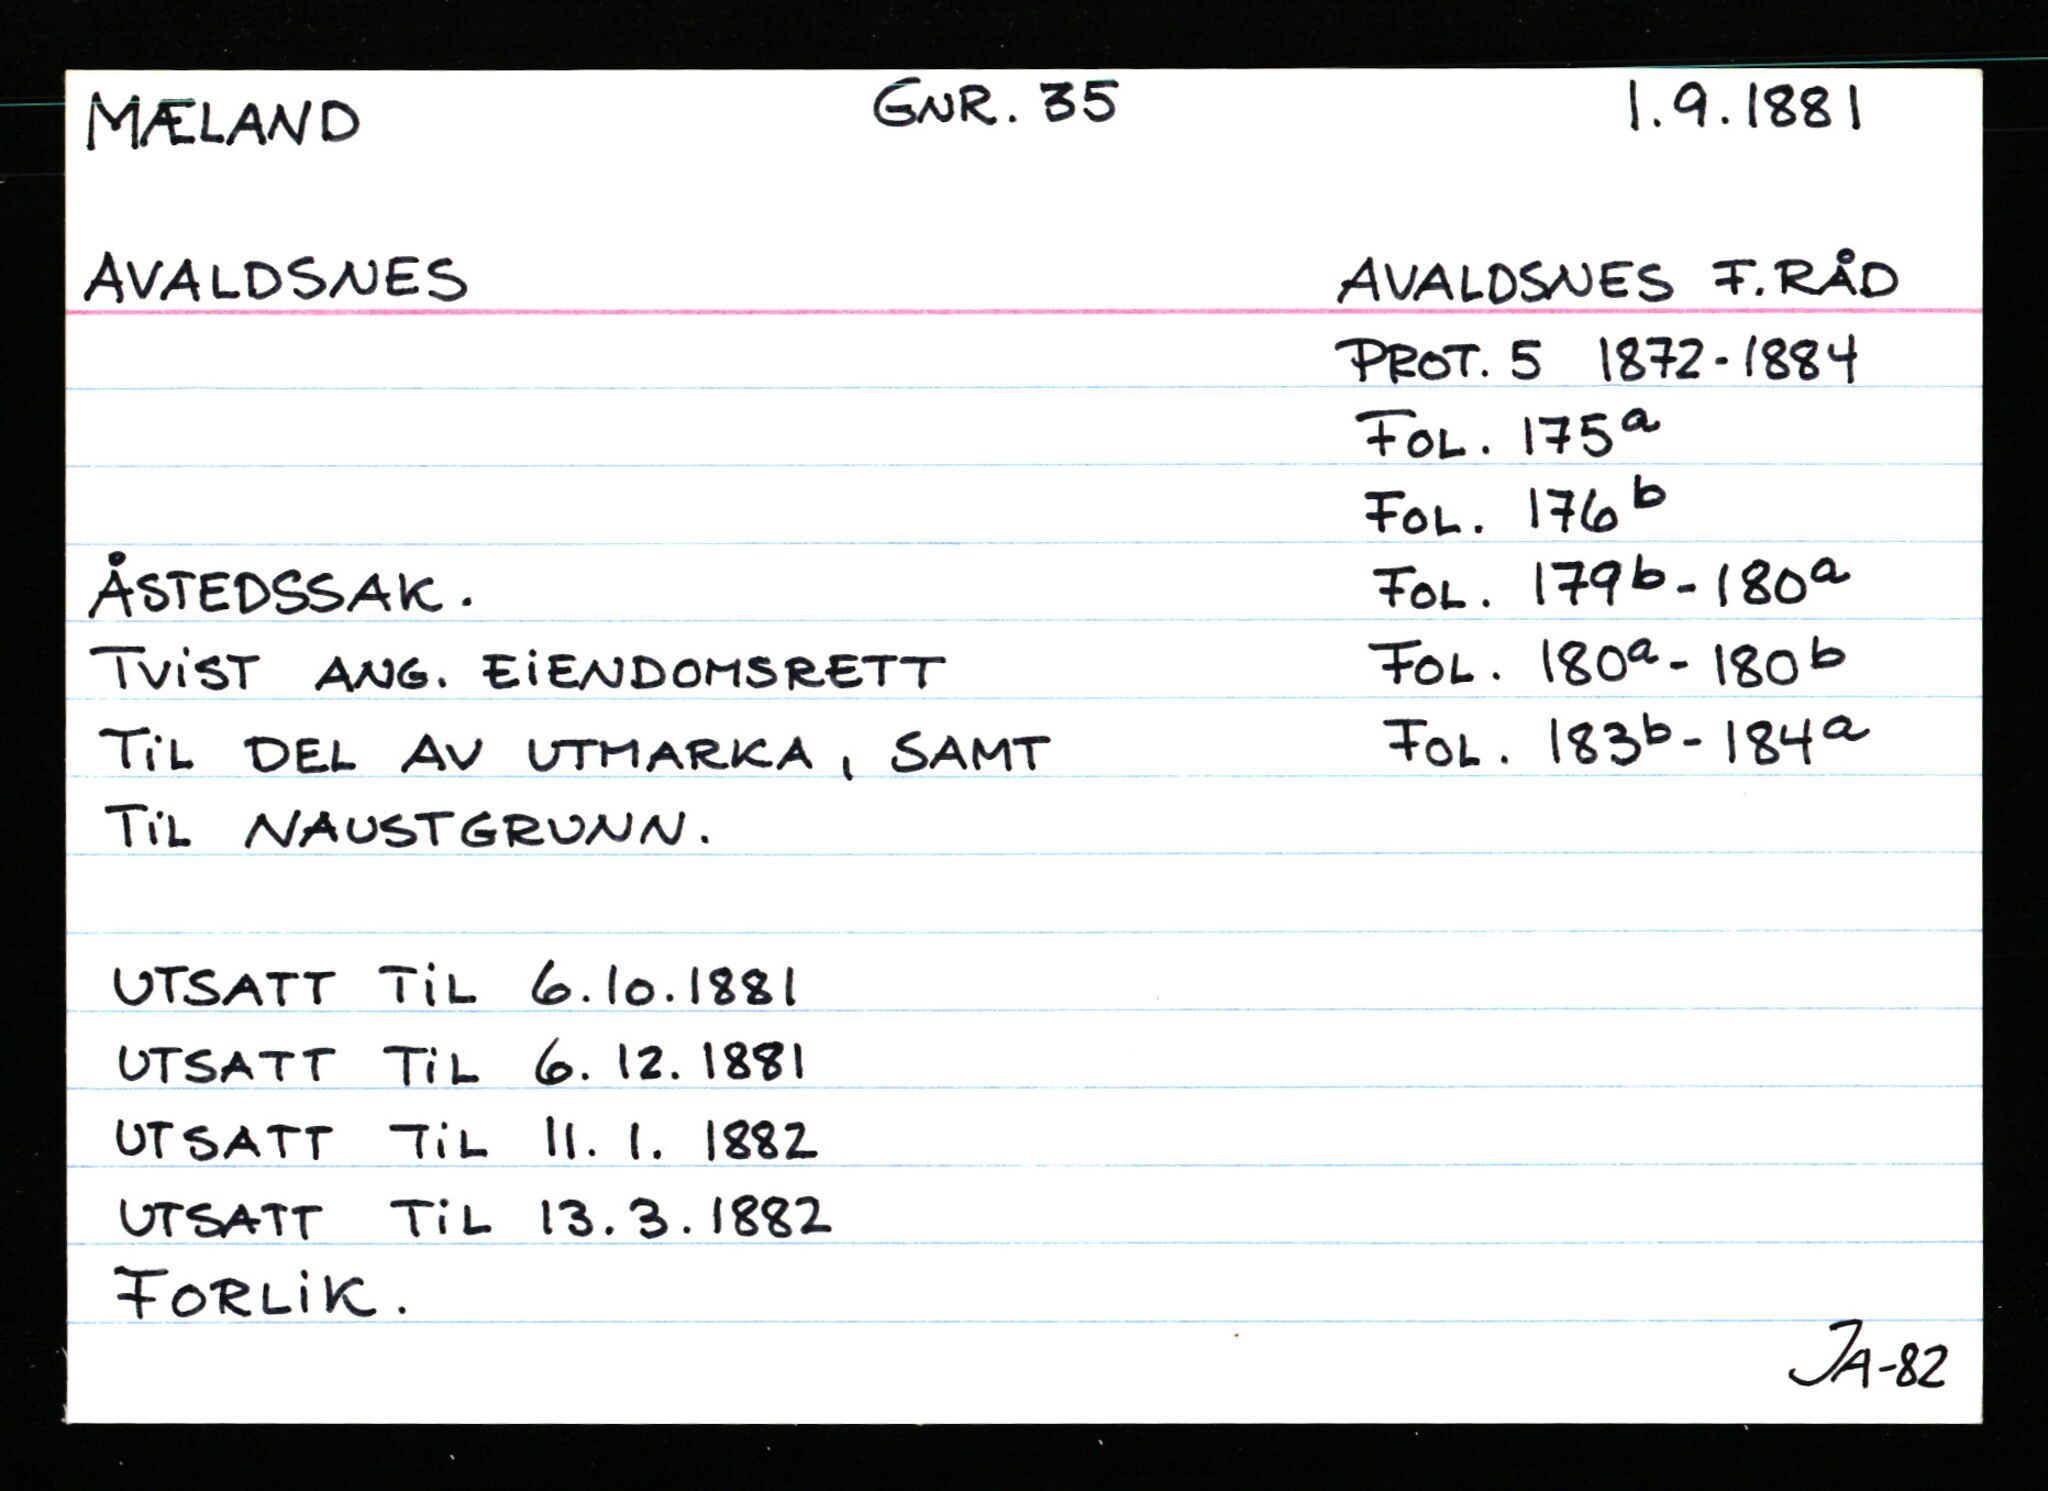 MÆLAND GNR. 35 1.9.1881
AVALDSNES AVALDSNES F.RÅD
PROT. 5 1872-1884
FOL. 175a
FOL. 176b
ÅSTEDSSAK. FOL. 179b-180a
TVIST ANG. EIENDOMSRETT FOL. 180a-180b
TIL DEL AV UTMARKA, SAMT FOL. 183b-184a
TIL NAUSTGRUNN.
UTSATT TIL 6.10.1881
UTSATT TIL 6.12.1881
UTSATT TIL 11.1.1882
UTSATT TIL 13.3.1882
FORLIK.
JA-82